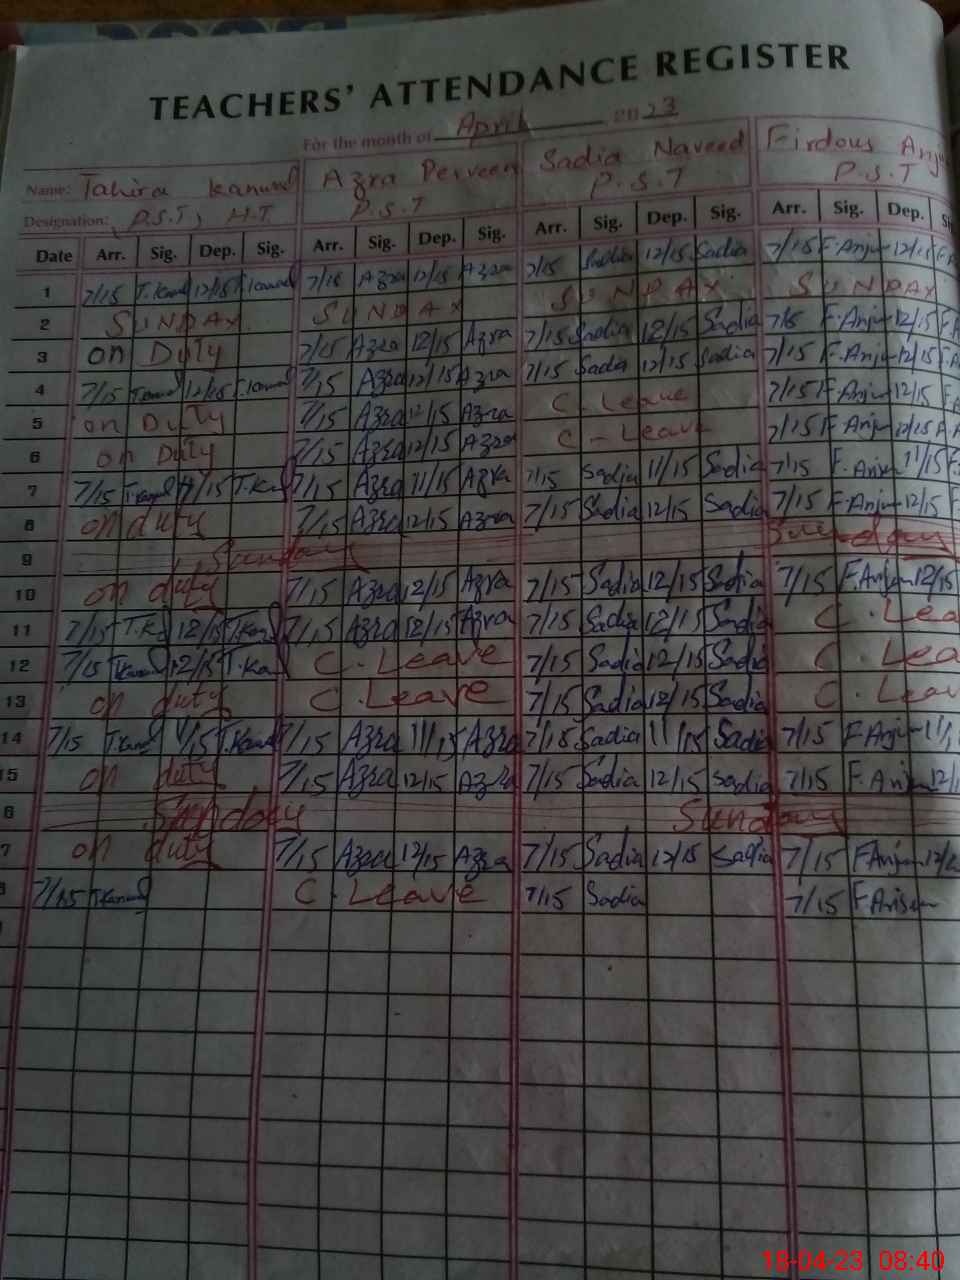 TEACHERS' ATTENDANCE REGISTER
For the month of April 2023
Name: Tahira Kanwal Azra Perveen Sadia Naveed Firdous Anju
Designation: P.S.T, H.T P.S.T P.S.T P.S.T
Date Arr. Sig. Dep. Sig. Arr. Sig. Dep. Sig. Arr. Sig. Dep. Sig. Arr. Sig. Dep. Si
1 7/15 T.Kanwal 12/15 T.Kanwal 7/15 Azra 12/15 Azra 7/15 Sadia 12/15 Sadia 7/15 F.Anjum 12/15
2 SUNDAY SUNDAY SUNDAY SUNDAY
3 on Duty 7/15 Azra 12/15 Azra 7/15 Sadia 12/15 Sadia 7/15 F.Anjum 12/15
4 7/15 T.Kanwal 12/15 T.Kanwal 7/15 Azra 12/15 Azra 7/15 Sadia 12/15 Sadia 7/15 F.Anjum 12/15
5 on Duty 7/15 Azra 12/15 Azra C. Leave 7/15 F.Anjum 12/15
6 on Duty 7/15 Azra 12/15 Azra C - Leave 7/15 F.Anjum 12/15
7 7/15 T.Kanwal 11/15 T.Kan 7/15 Azra 11/15 Azra 7/15 Sadia 11/15 Sadia 7/15 F.Anjum 11/15
8 on duty 7/15 Azra 12/15 Azra 7/15 Sadia 12/15 Sadia 7/15 F.Anjum 12/15
9 Sunday Sunday
10 on duty 7/15 Azra 12/15 Azra 7/15 Sadia 12/15 Sadia 7/15 F.Anjum 12/15
11 7/15 T.Ka 12/15 T.Kanwal 7/15 Azra 12/15 Azra 7/15 Sadia 12/15 Sadia C. Lea
12 7/15 T.Kanwal 12/15 T.Kan C. Leave 7/15 Sadia 12/15 Sadia C. Lea
13 on duty C. Leave 7/15 Sadia 12/15 Sadia C. Leav
14 7/15 T.Kanwal 11/15 T.Kanwal 7/15 Azra 11/15 Azra 7/15 Sadia 11/15 Sadia 7/15 F.Anjum 11/1
15 on duty 7/15 Azra 12/15 Azra 7/15 Sadia 12/15 Sadia 7/15 F.Anjum 12/1
6 Sunday Sunday
7 on duty 7/15 Azra 12/15 Azra 7/15 Sadia 12/15 Sadia 7/15 F.Anjum 12/1
8 7/15 T.Kanwal C. Leave 7/15 Sadia 7/15 F.Anjum
18-04-23 08:40